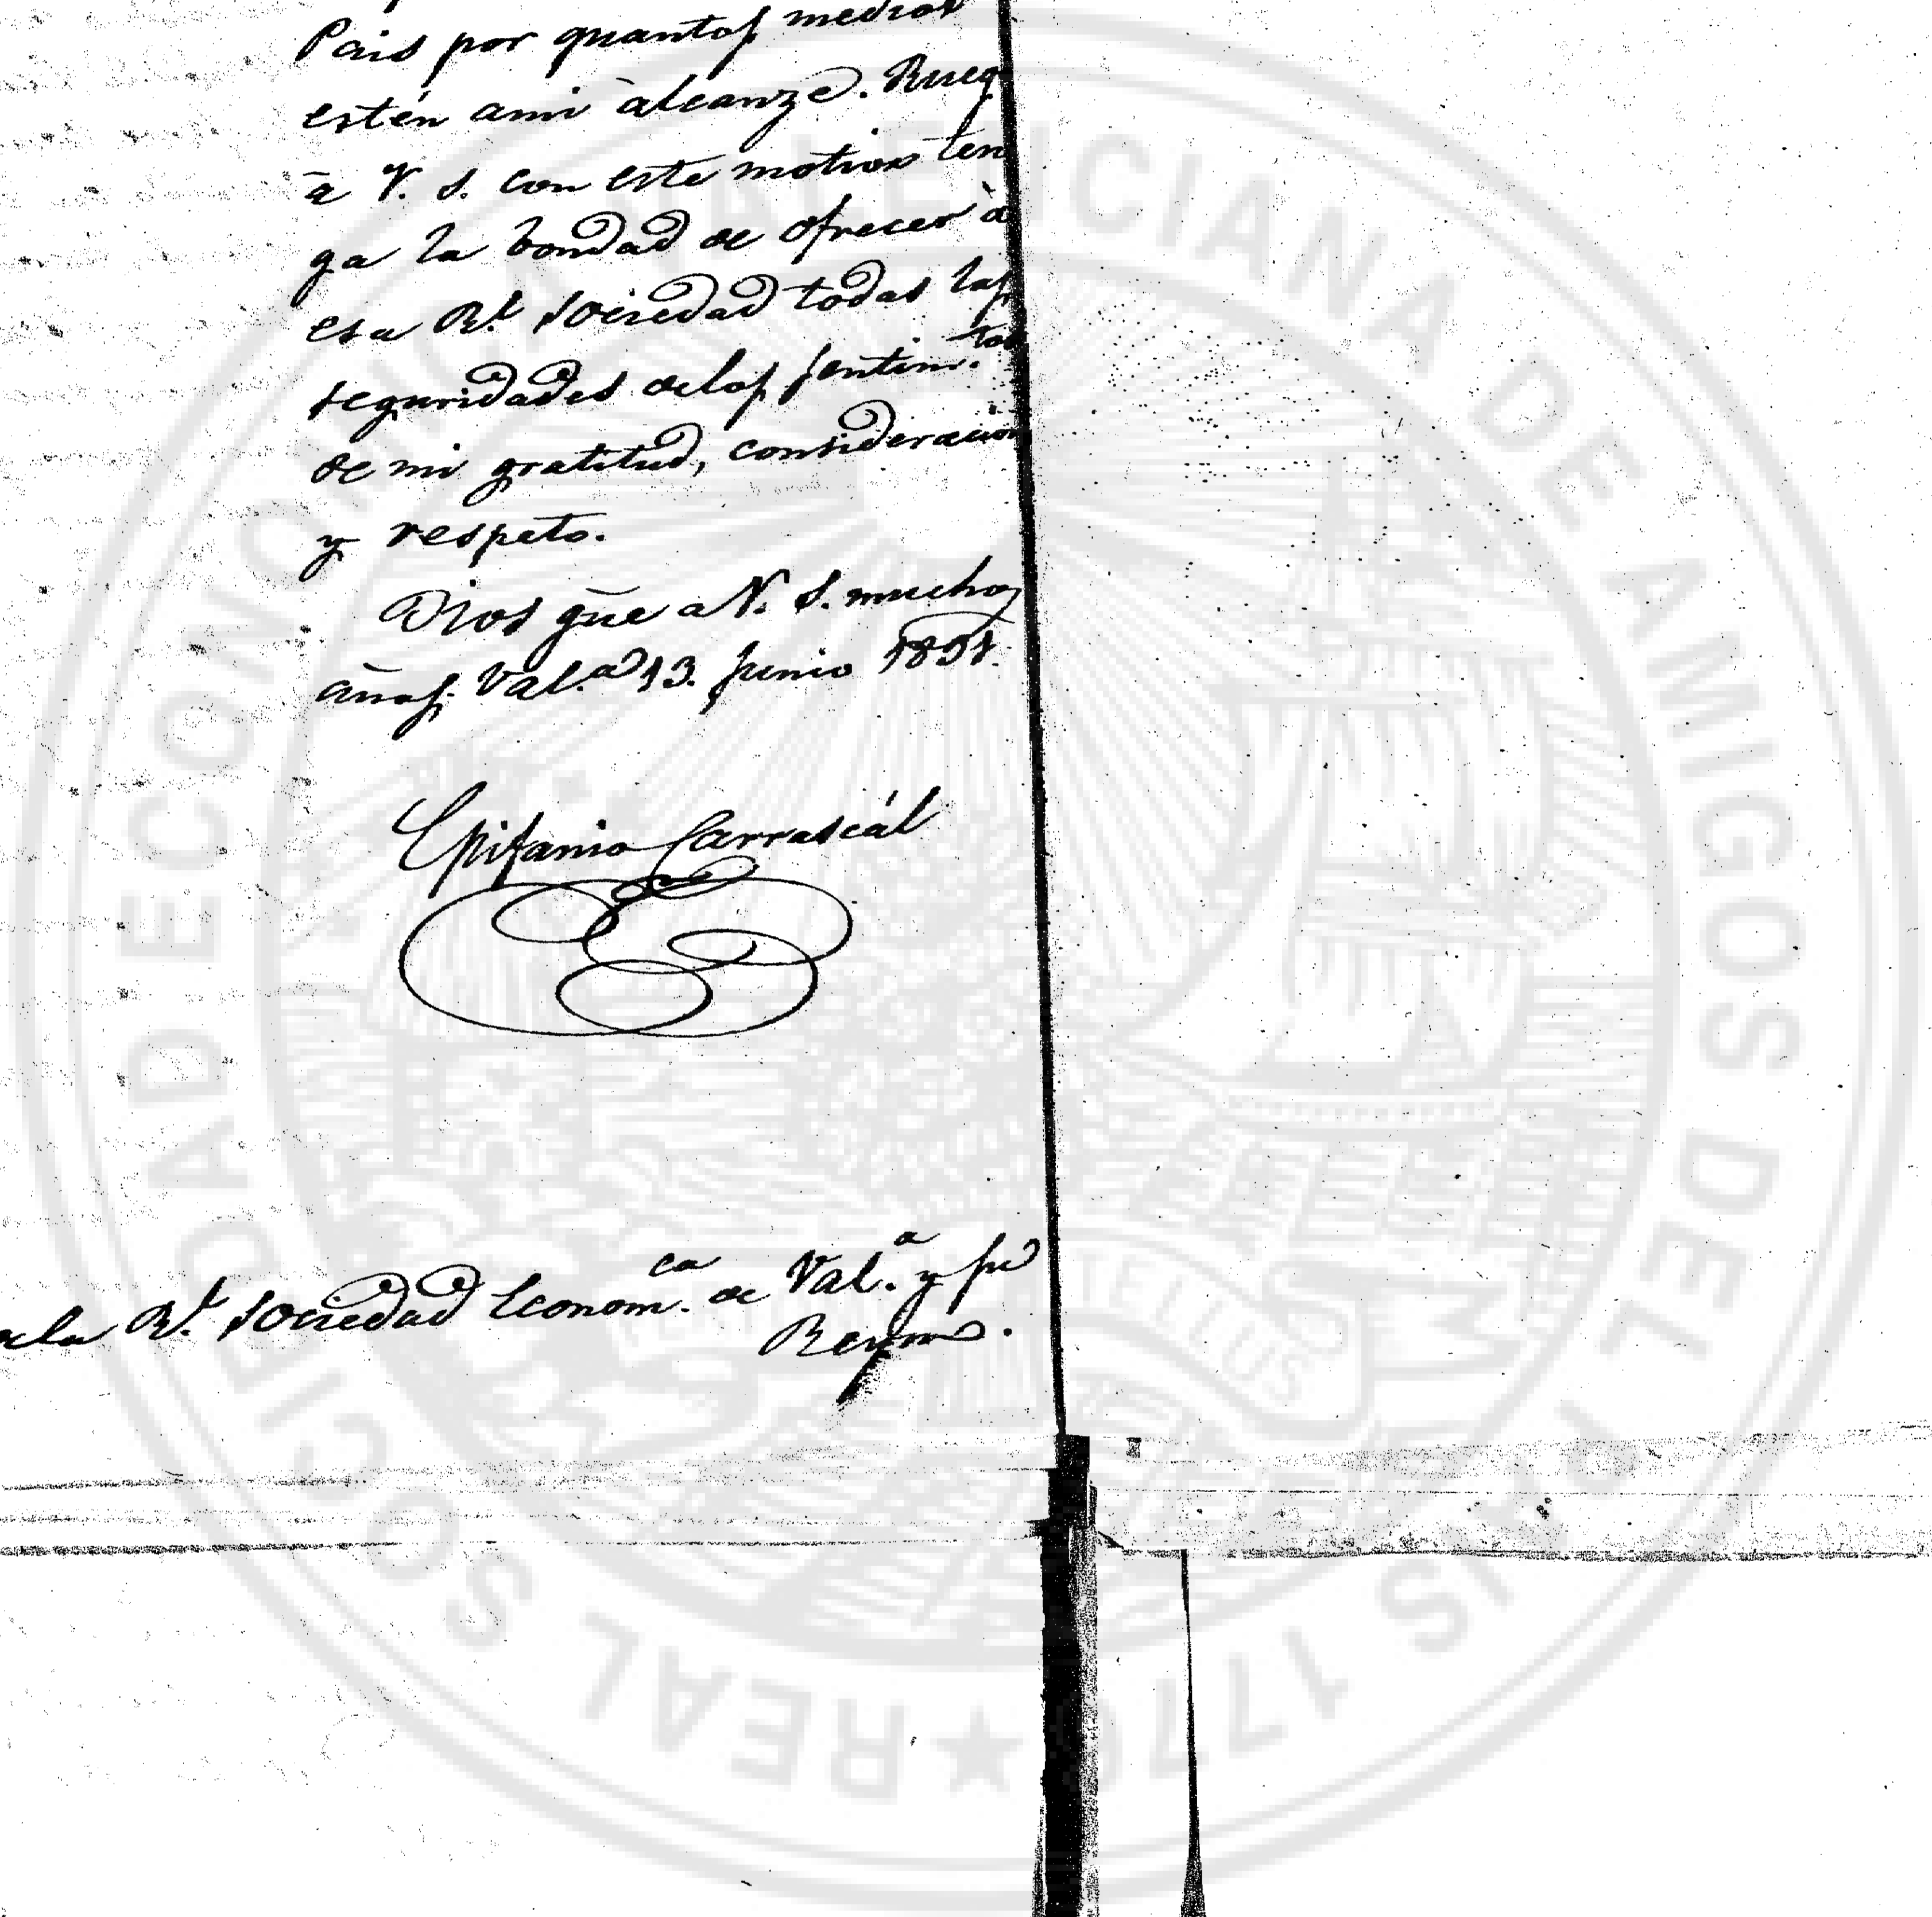 Pais por quantos medios
estén ami àlcanze. Rueg
à V. S. con este motivo ten
ga la bondad de ofrecer à
esa Rl. Sociedad todas las
seguridades delos sentim.tos
de mi gratitud, consideracion
y respeto.
Dios gue a V. S. muchos
años. Val.a 13. Junio
Epifanio Carrascál
ala Rl. Sociedad Econom.ca de Val.a y su
Reyno.
REAL SOCIEDAD ECONÓMICA VALENCIANA DE AMIGOS DEL PAIS 1776